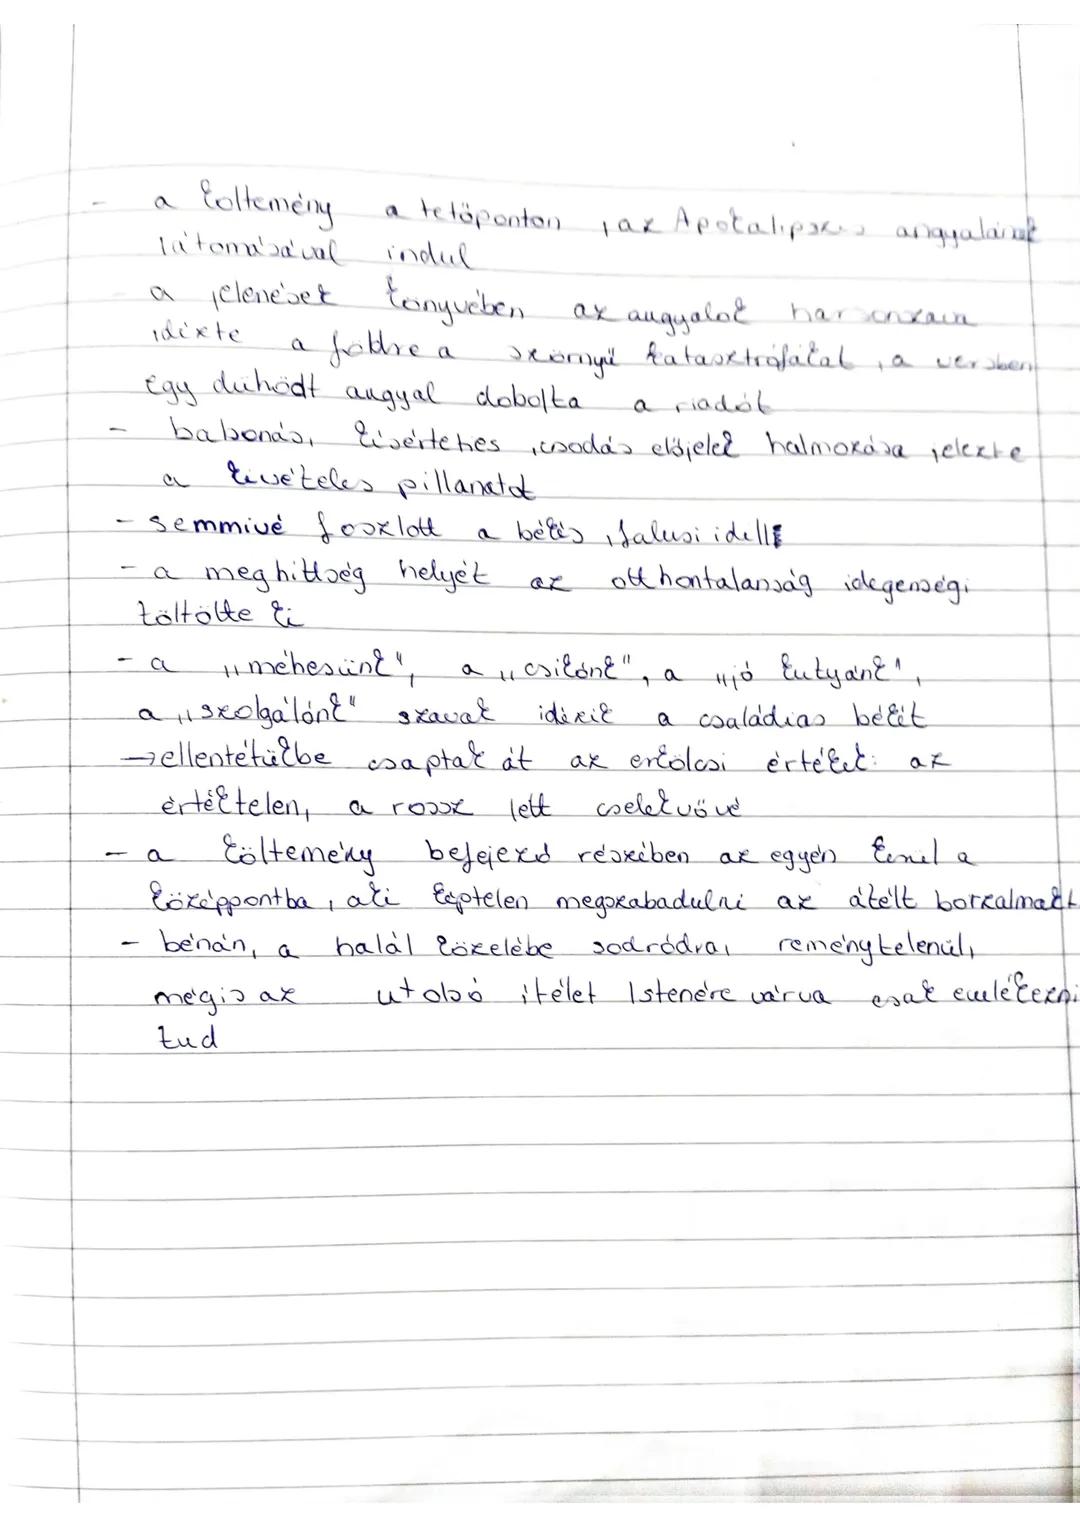 - a költemény a tetőponton, az Apokalipszis angyalának
látomásával indul
a jelenések könyvében az angyalok harsonzava
idézte a földre a szörnyű katasztrófákat, a versben
egy dühödt angyal dobolta a riadót
- babonás, kísérteties, csodás előjelek halmozása jelezte
a kivételes pillanatot
- semmivé foszlott a békés, falusi idill
- a meghittség helyét az otthontalanság idegenségi
töltötte ki
- a „méhesünk", a „csikónk", a „jó kutyánk",
a „szolgálónk" szavak idézik a családias békit
→ ellentétükbe csaptak át az erkölcsi értékek: az
értéktelen, a rossz lett cselekvővé
- a költemény befejező részében az egyén kerül a
középpontba, aki képtelen megszabadulni az átélt borzalmakt
- bénán, a halál közelébe sodródva, reménytelenül,
mégis az utolsó ítélet Istenére várva csak emlékezni
tud